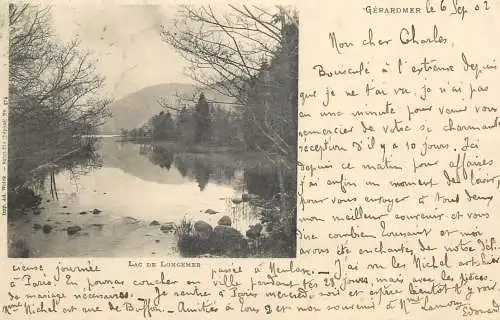 GÉRARDMER le 6 Sep 02
Mon cher Charles,
Bousculé à l'extrême depuis
que je ne t'ai vu, je n'ai pas
eu une minute pour venir vous
remercier de votre si charmante
réception d'il y a 10 jours. Ici
depuis ce matin pour affaires
j'ai enfin un moment de loisir
pour vous envoyer à tous deux
mon meilleur souvenir et vous
dire combien Louvant et moi
avons été enchantés de notre déli-
LAC DE LONGEMER
cieuse journée passée à Meulan. J'ai vu les Michel
à Paris En pourras coucher en ville pendant tes 28 jours, mais avec les pièces
de mariage nécessaires. Je rentre à Paris mercredi soir et espère bientôt
Michel est rue de Buffon. Amitiés à tous 2 et mon souvenir à
Edouard